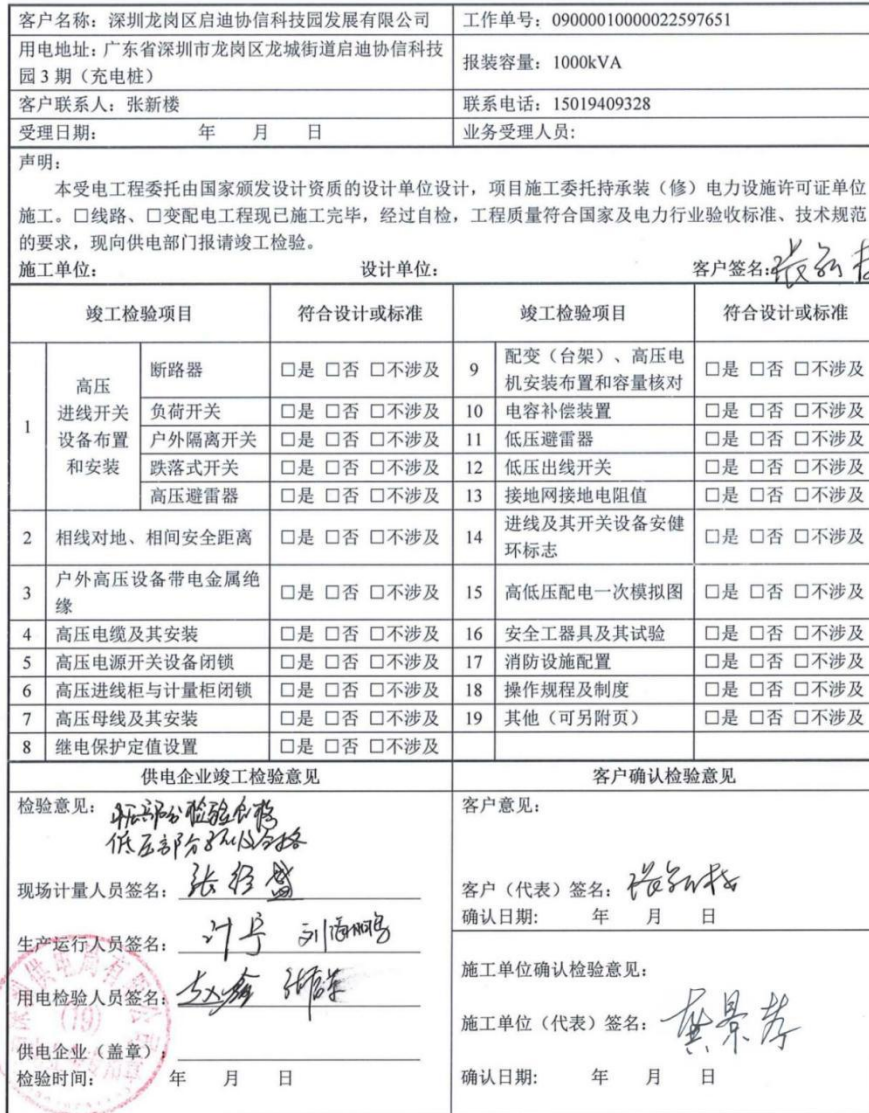 客户名称：深圳龙岗区启迪协信科技园发展有限公司
工作单号：09000010000022597651
用电地址：广东省深圳市龙岗区龙城街道启迪协信科技
园3期（充电桩）
报装容量：1000kVA
客户联系人：张新楼
联系电话：15019409328
受理日期： 年 月 日
业务受理人员：
声明：
本受电工程委托由国家颁发设计资质的设计单位设计，项目施工委托持承装（修）电力设施许可证单位
施工。□线路、□变配电工程现已施工完毕，经过自检，工程质量符合国家及电力行业验收标准、技术规范
的要求，现向供电部门报请竣工检验。
施工单位： 设计单位： 客户签名：
竣工检验项目 符合设计或标准 竣工检验项目 符合设计或标准
1 高压
进线开关
设备布置
和安装
断路器 □是 □否 □不涉及
负荷开关 □是 □否 □不涉及
户外隔离开关 □是 □否 □不涉及
跌落式开关 □是 □否 □不涉及
高压避雷器 □是 □否 □不涉及
9 配变（台架）、高压电
机安装布置和容量核对 □是 □否 □不涉及
10 电容补偿装置 □是 □否 □不涉及
11 低压避雷器 □是 □否 □不涉及
12 低压出线开关 □是 □否 □不涉及
13 接地网接地电阻值 □是 □否 □不涉及
2 相线对地、相间安全距离 □是 □否 □不涉及
14 进线及其开关设备安健
环标志 □是 □否 □不涉及
3 户外高压设备带电金属绝
缘 □是 □否 □不涉及
15 高低压配电一次模拟图 □是 □否 □不涉及
4 高压电缆及其安装 □是 □否 □不涉及
16 安全工器具及其试验 □是 □否 □不涉及
5 高压电源开关设备闭锁 □是 □否 □不涉及
17 消防设施配置 □是 □否 □不涉及
6 高压进线柜与计量柜闭锁 □是 □否 □不涉及
18 操作规程及制度 □是 □否 □不涉及
7 高压母线及其安装 □是 □否 □不涉及
19 其他（可另附页） □是 □否 □不涉及
8 继电保护定值设置 □是 □否 □不涉及
供电企业竣工检验意见
检验意见：
低压部分
现场计量人员签名：
生产运行人员签名：
用电检验人员签名：
供电企业（盖章）：
检验时间： 年 月 日
(19)
客户确认检验意见
客户意见：
客户（代表）签名：
确认日期： 年 月 日
施工单位确认检验意见：
施工单位（代表）签名：
确认日期： 年 月 日